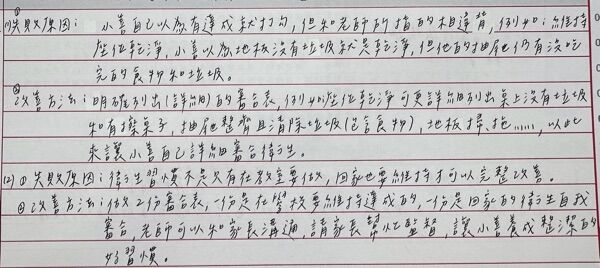 (1)①失敗原因：小善自己以為有達成就打勾，但和老師的指的相違背，例如：維持
座位乾淨，小善以為地板沒有垃圾就是乾淨，但他的抽屜仍有沒吃
完的食物和垃圾。
②改善方法：明確列出(詳細)的審合表，例如座位乾淨可更詳細列出桌上沒有垃圾
和有擦桌子，抽屜整齊且清除垃圾(包含食物)，地板掃、拖……，以此
來讓小善自己詳細審合衛生。
(2)①失敗原因：衛生習慣不是只有在教室要做，回家也要維持才可以完整改善。
②改善方法：做2份審合表，一份是在學校要維持達成的，一份是回家的衛生自我
審合，老師可以和家長溝通，請家長幫忙監督，讓小善養成整潔的
好習慣。